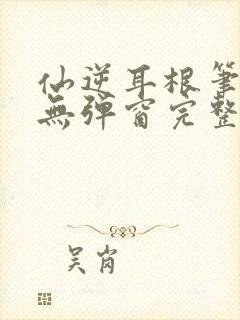 仙逆耳根筆
無彈窗完整
吴肖